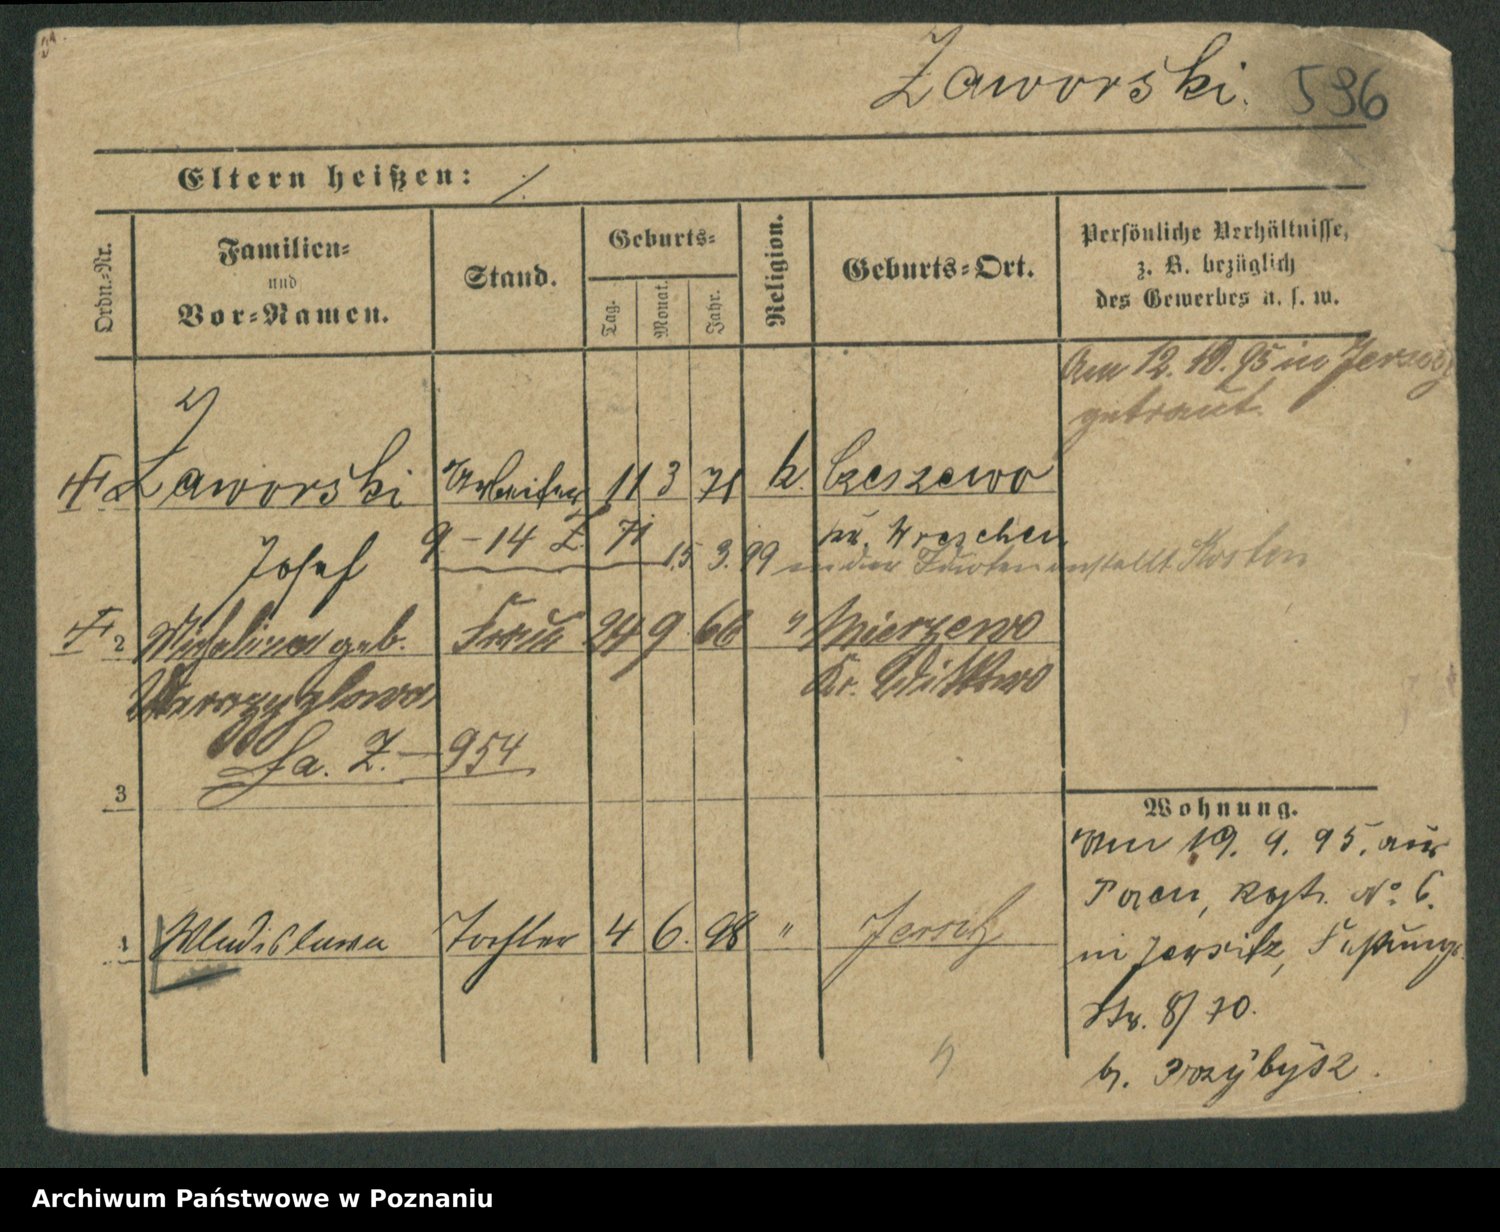 Zaworski. 596
Eltern heißen: /.
Ordn.=Nr.
Familien=
und
Vor=Namen.
Stand.
Geburts=
Tag.
Monat.
Jahr.
Religion.
Geburts=Ort.
Persönliche Verhältnisse,
z. B. bezüglich
des Gewerbes u. s. w.
Am 12. 10. 95 in
getraut.
Zaworski Arbeiter 11 3 71 k. Czeszewo
9 - 14 Z. 71 kr. Wreschen
Josef 15 3. 99 in der Idioten anstallt Kosten
2 Michalina geb. Frau 24 9 66 " Mierzewo
Kr. Wittkowo
fa. Z. - 954
3
Wohnung.
4 Wladislawa Tochter 4 6. 98 " Jersitz
Am 19. 9. 95. aus
Posen, No 6.
in Jersitz,
Str. 8/70.
b. Przybysz.
Archiwum Państwowe w Poznaniu